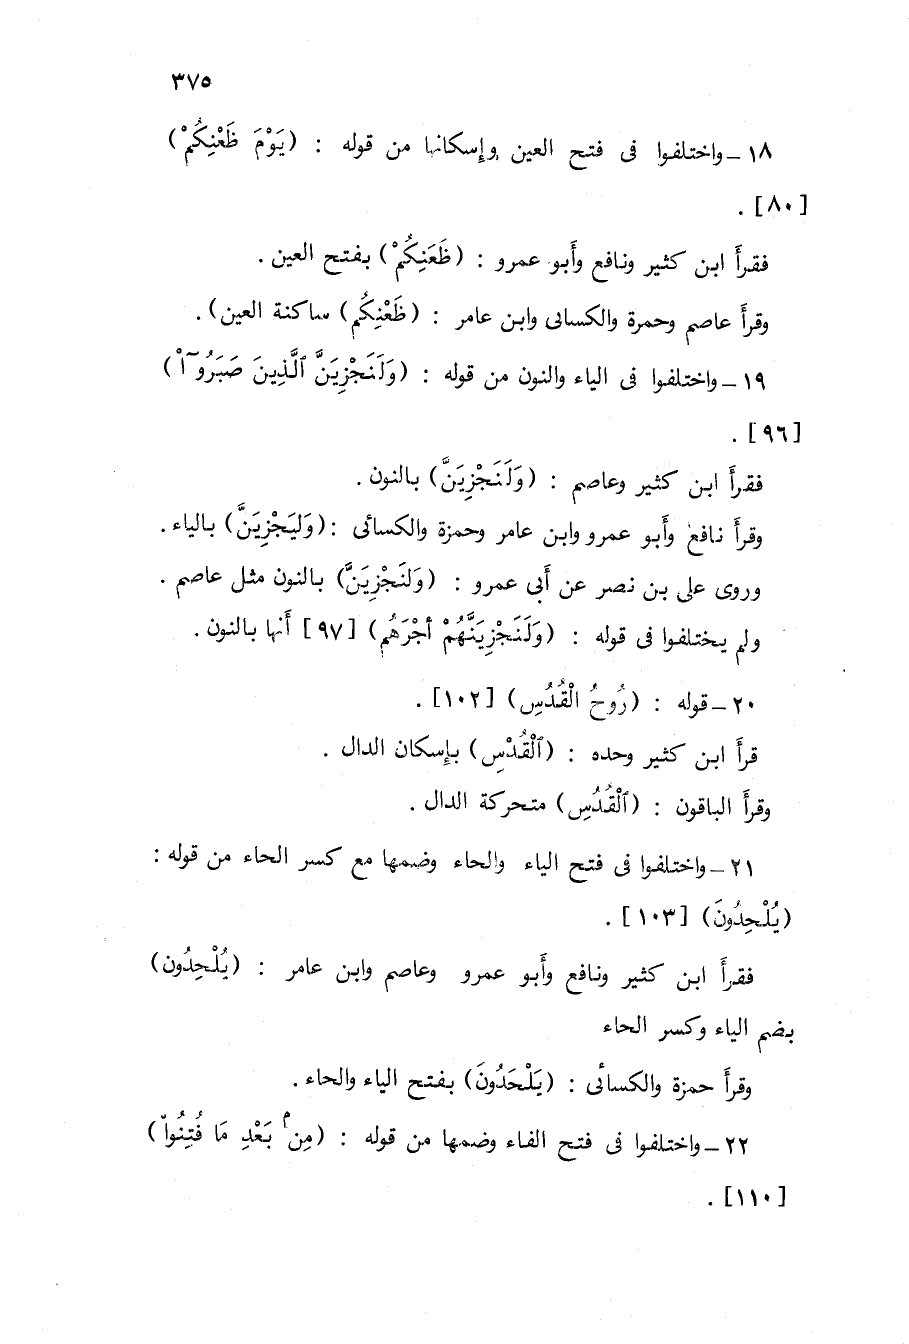 ٣٧٥
١٨ - واختلفوا فى فتح العين وإسكانها من قوله : (يَوْمَ ظَعْنِكُمْ)
[٨٠] .
فقرأَ ابن كثير ونافع وأَبو عمرو : (ظَعَنِكُمْ) بفتح العين .
وقرأَ عاصم وحمزة والكسائى وابن عامر : (ظَعْنِكُم) ساكنة العين) .
١٩ - واختلفوا فى الياء والنون من قوله : (وَلَنَجْزِيَنَّ ٱلَّذِينَ صَبَرُوٓاْ)
[٩٦] .
فقرأَ ابن كثير وعاصم : (وَلَنَجْزِيَنَّ) بالنون .
وقرأَ نافع وأَبو عمرو وابن عامر وحمزة والكسائى : (وَلَيَجْزِيَنَّ) بالياء .
وروى على بن نصر عن أَبى عمرو : (وَلنَجْزِيَنَّ) بالنون مثل عاصم .
ولم يختلفوا فى قوله : (وَلَنَجْزِيَنَّهُمْ أَجْرَهُم) [٩٧] أَنها بالنون .
٢٠ - قوله : (رُوحُ الْقُدُسِ) [١٠٢] .
قرأَ ابن كثير وحده : (ٱلْقُدْسِ) بإسكان الدال .
وقرأَ الباقون : (ٱلْقُدُسِ) متحركة الدال .
٢١ - واختلفوا فى فتح الياء والحاء وضمها مع كسر الحاء من قوله :
(يُلْحِدُونَ) [١٠٣] .
فقرأَ ابن كثير ونافع وأَبو عمرو وعاصم وابن عامر : (يُلْحِدُون)
بضم الياء وكسر الحاء
وقرأَ حمزة والكسائى : (يَلْحَدُونَ) بفتح الياء والحاء .
٢٢ - واختلفوا فى فتح الفاء وضمها من قوله : (مِنۢ بَعْدِ مَا فُتِنُواْ)
[١١٠] .